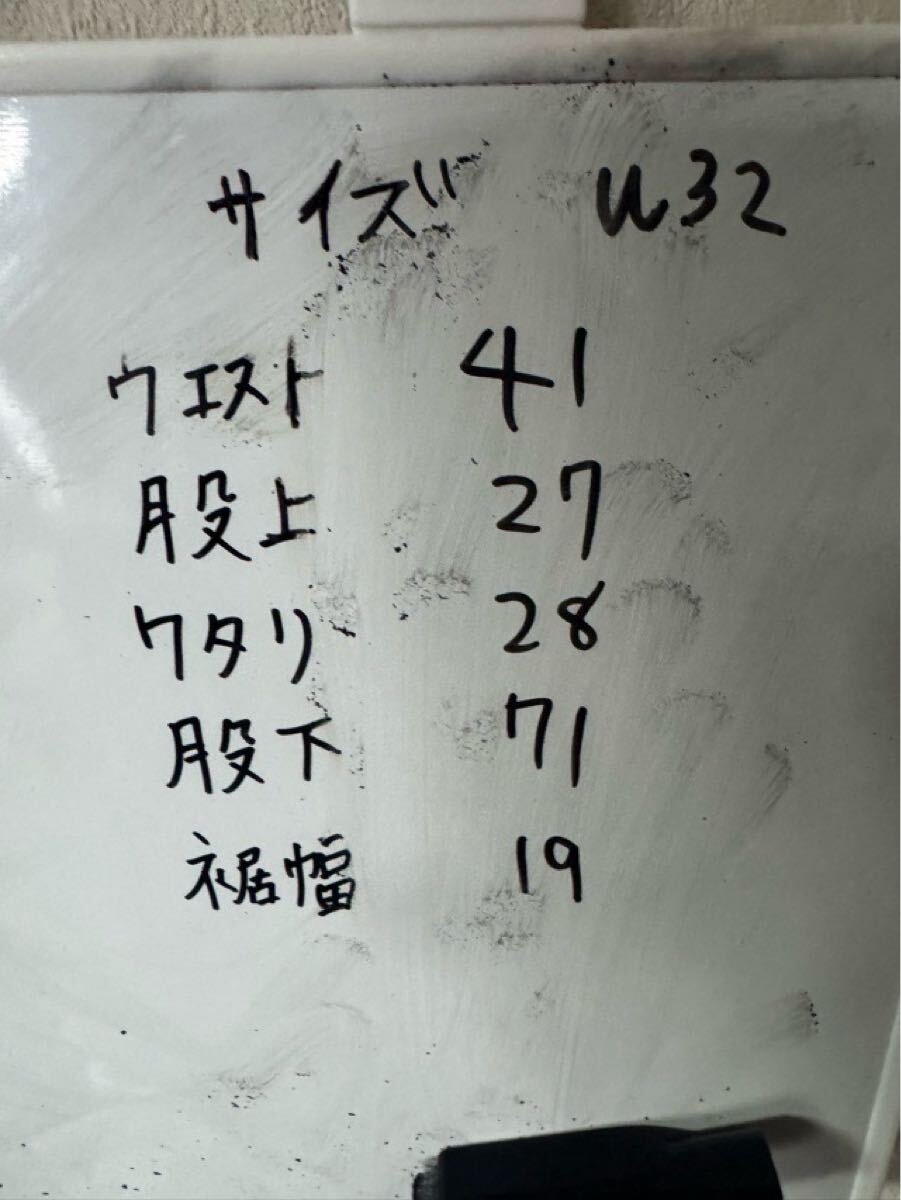 サイズ W32
ウエスト 41
股上 27
ワタリ 28
股下 71
裾幅 19